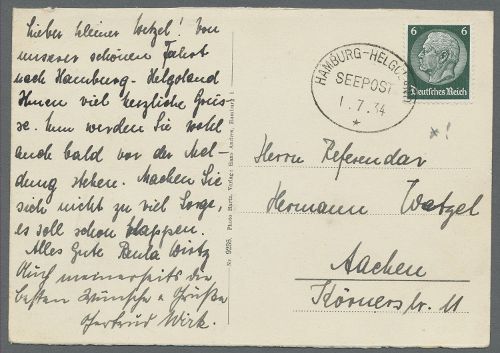 Lieber kleiner Wetzel! Von
unserer schönen Fahrt
nach Hamburg-Helgoland
Ihnen viel herzliche Grüs-
se. Nun werden Sie wohl
auch bald vor der Mel-
dung stehen. Machen Sie
sich nicht zu viel Sorge,
es soll schon klappen.
Alles Gute Paula Wirtz
Auch meinerseits die
besten Wünsche & Grüße
Gertrud Wirk.
Nr. 9286. Photo Hartz. Verlag: Hans Andres, Hamburg 1
HAMBURG-HELGOLAND
SEEPOST
1.7.34
*
6 6
Deutsches Reich
*!
Herrn Referendar
Hermann Watzel
Aachen
Körnerstr. 11